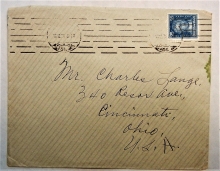 Mr. Charles Lange,
340 Resor Ave,
Cincinnati,
Ohio,
U.S.A.